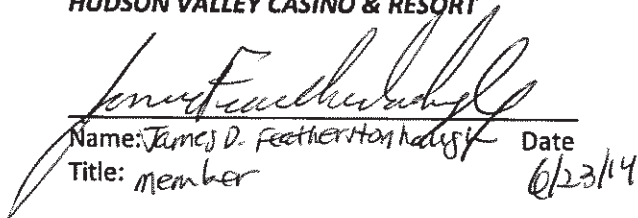 HUDSON VALLEY CASINO & RESORT
Name: James D. Featherstonhaugh Date
Title: member 6/23/14